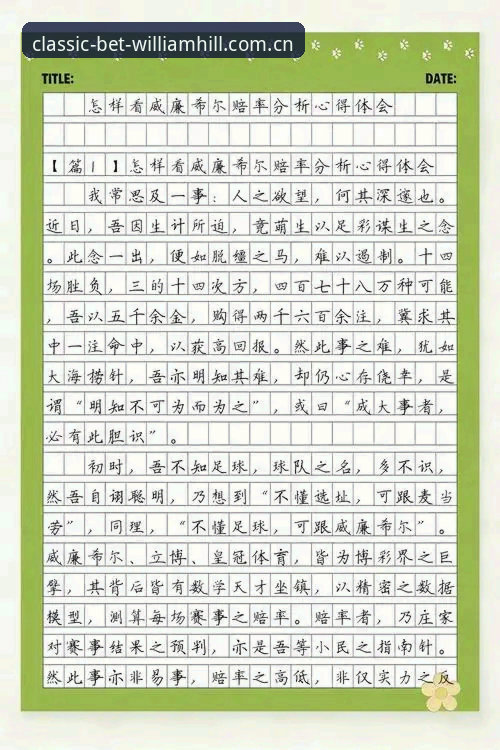 classic-bet-williamhill.com.cn
TITLE:
DATE:
怎样看威廉希尔赔率分析心得体会
【篇1】怎样看威廉希尔赔率分析心得体会
我常思及一事：人之欲望，何其深邃也。
近日，吾因生计所迫，竟萌生以足彩谋生之念
。此念一出，便如脱缰之马，难以遏制。十四
场胜负，三的十四次方，四百七十八万种可能
，吾以五千余金，购得两千六百余注，冀求其
中一注命中，以获高回报。然此事之难，犹如
大海捞针，吾亦明知其难，却仍心存侥幸，是
谓“明知不可为而为之”，或曰“成大事者，
必有此胆识”。
初时，吾不知足球，球队之名，多不识，
然吾自诩聪明，乃想到“不懂选址，可跟麦当
劳”，同理，“不懂足球，可跟威廉希尔”。
威廉希尔、立博、皇冠体育，皆为博彩界之巨
擘，其背后皆有数学天才坐镇，以精密之数据
模型，测算每场赛事之赔率。赔率者，乃庄家
对赛事结果之预判，亦是吾等小民之指南针。
然此事亦非易事，赔率之高低，非仅实力之反